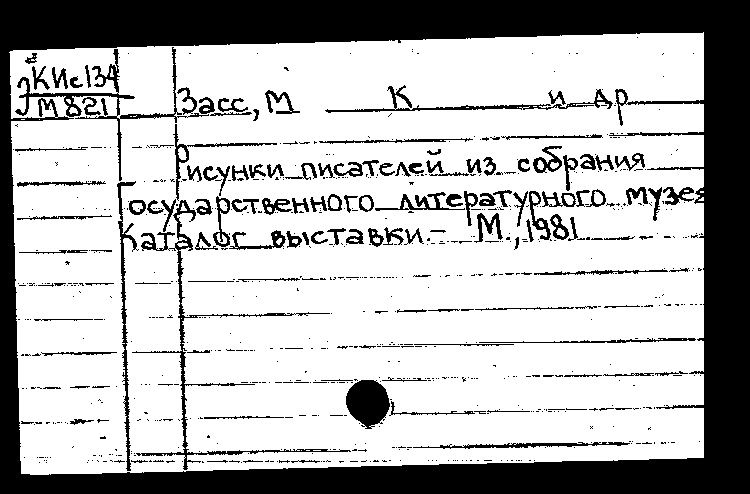 КИс134
М821
Засс, М К и др
Рисунки писателей из собрания
Государственного литературного музея
Каталог выставки.- М., 1981